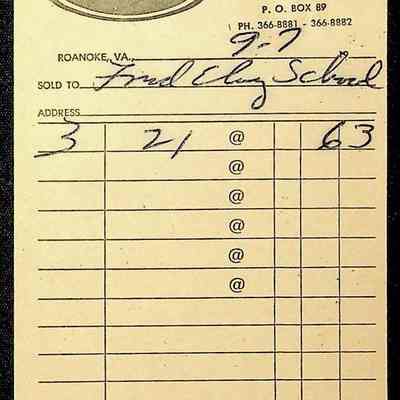 P. O. BOX 89
PH. 366-8881 - 366-8882
ROANOKE, VA., 9-7 19
SOLD TO
ADDRESS
3 21 @ 63
@
@
@
@
@